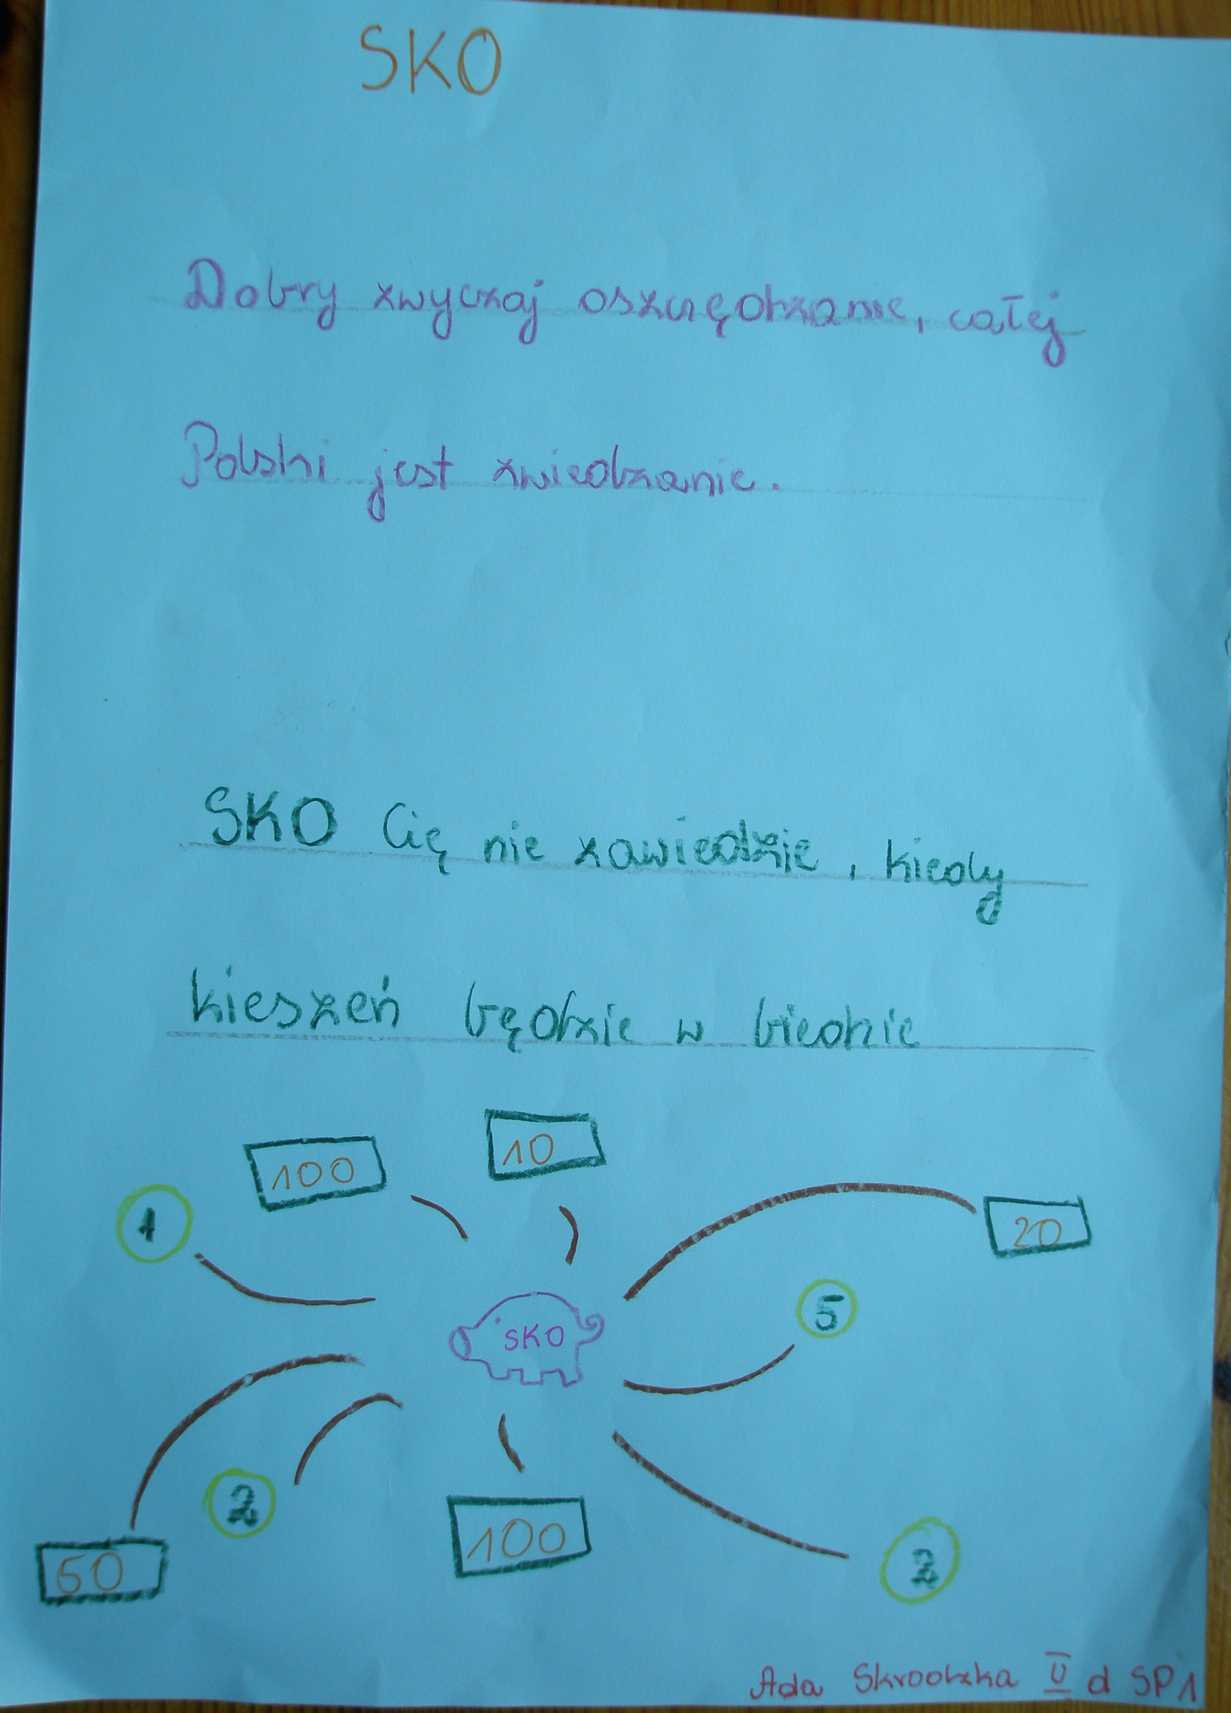 SKO
Dobry zwyczaj oszczędzanie, całej
Polski jest zwiedzanie.
SKO Cię nie zawiedzie, kiedy
kieszeń będzie w biednie
100
10
1
20
SKO
5
2
100
50
2
Ada Skrodzka II d SP1